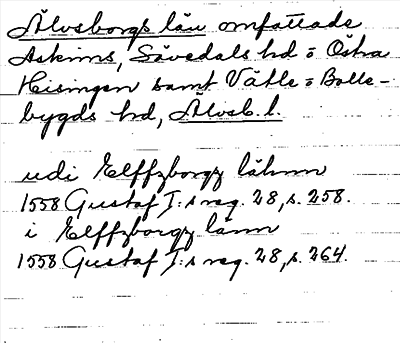 Älvsborgs län omfattade
Askims, Sävedals hd o Östra
Hisingen samt Vätle o Bolle-
bygds hd, Älvsb. l.
udi Elffzborgz lähnn
1558 Gustaf I:s reg. 28, s. 258.
i Elffzborgz länn
1558 Gustaf I:s reg. 28, s. 264.